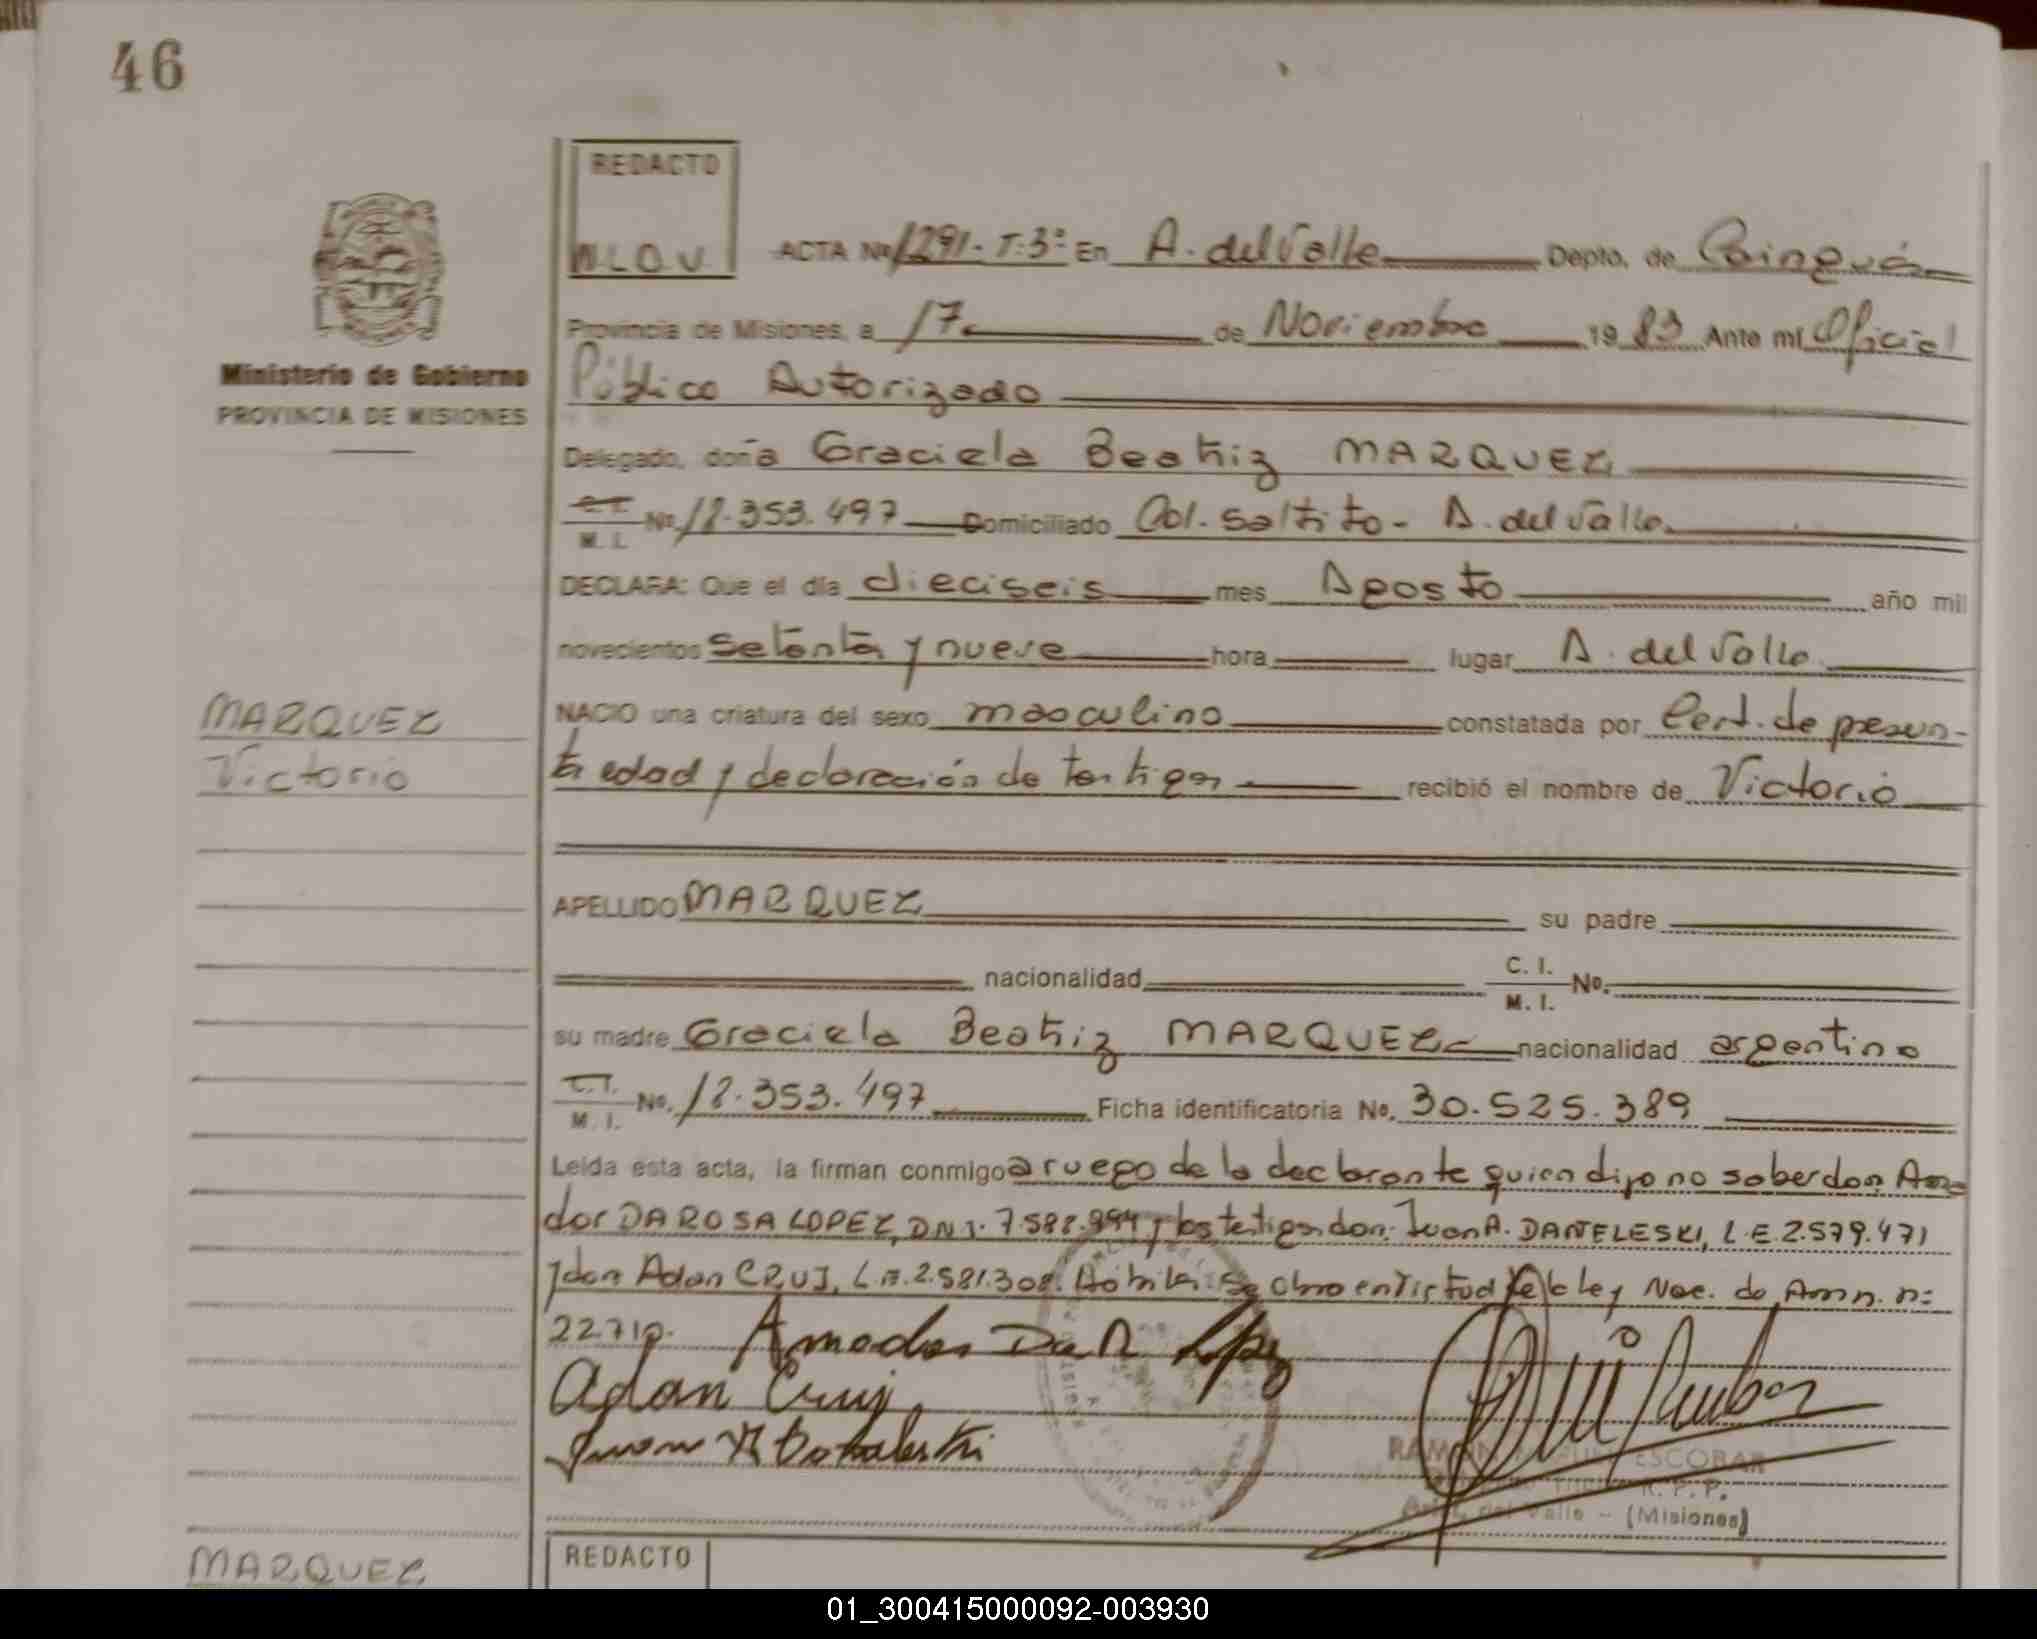 46
REDACTO
W.L.O.V.
ACTA Nº 1291- T:3º En A. del Valle Depto. de Cainguás
Provincia de Misiones, a 17 de Noviembre 1983 Ante mí Oficial
Público Autorizado
Ministerio de Gobierno
PROVINCIA DE MISIONES
Delegado, doña Graciela Beatriz MARQUEZ
C.I. M. I. Nº 12.353.497 Domiciliado Col. Saltito - A. del Valle
DECLARA: Que el día dieciseis mes Agosto año mil
novecientos setenta y nueve hora lugar A. del Valle
MARQUEZ
Victorio
NACIO una criatura del sexo masculino constatada por Cert. de presun-
ta edad y declaración de testigos recibió el nombre de Victorio
APELLIDO MARQUEZ su padre
nacionalidad C. I. M. I. Nº.
su madre Graciela Beatriz MARQUEZ nacionalidad argentina
C.I. M. I. Nº. 12.353.497 Ficha identificatoria Nº. 30.525.389
Leída esta acta, la firman conmigo a ruego de la declarante quien dijo no saber don Ama
dor DA ROSA LOPEZ, DNI. y los testigos don: Juan A. DANELESKI, L.E. 2.579.471
y don Adan CRUZ, L.E. 2.581.308. Se obro en virtud de la ley Nac. de Amn. nº
Adan Cruz
RAMON ESCOBAR
R. P. P.
del Valle - (Misiones)
MARQUEZ
REDACTO
01_300415000092-003930